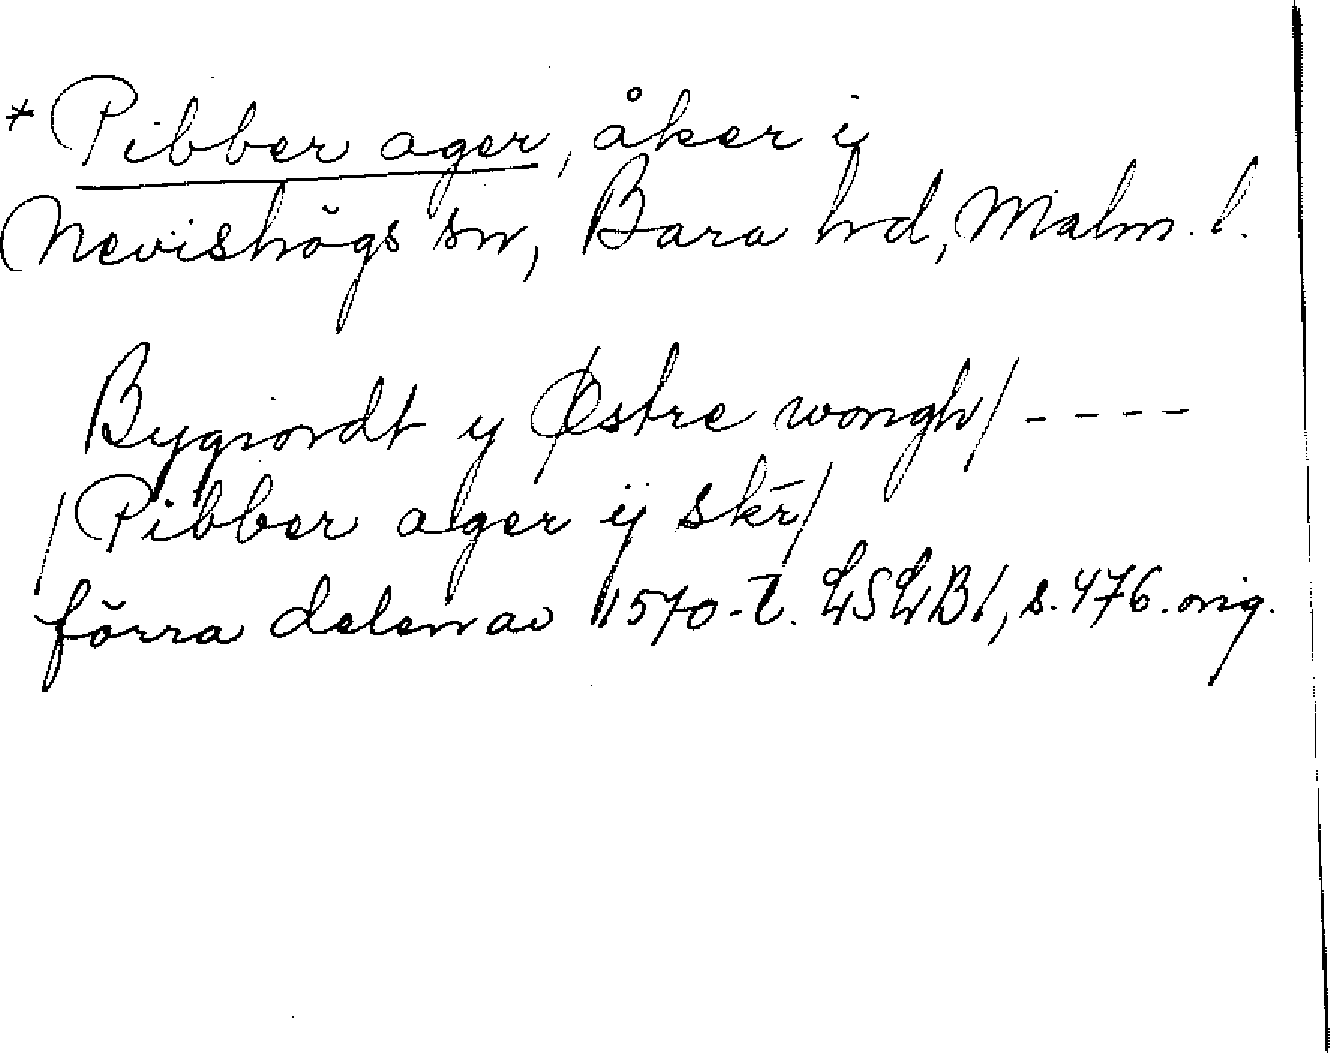 * Pibber ager, åker i
Nevishögs sn, Bara hd, Malm. l.
Bygiordt y Østre wongh/ ----
/Pibber ager ÿ skr̄/
förra delen av 1570-t. LSLB1, s. 476. orig.